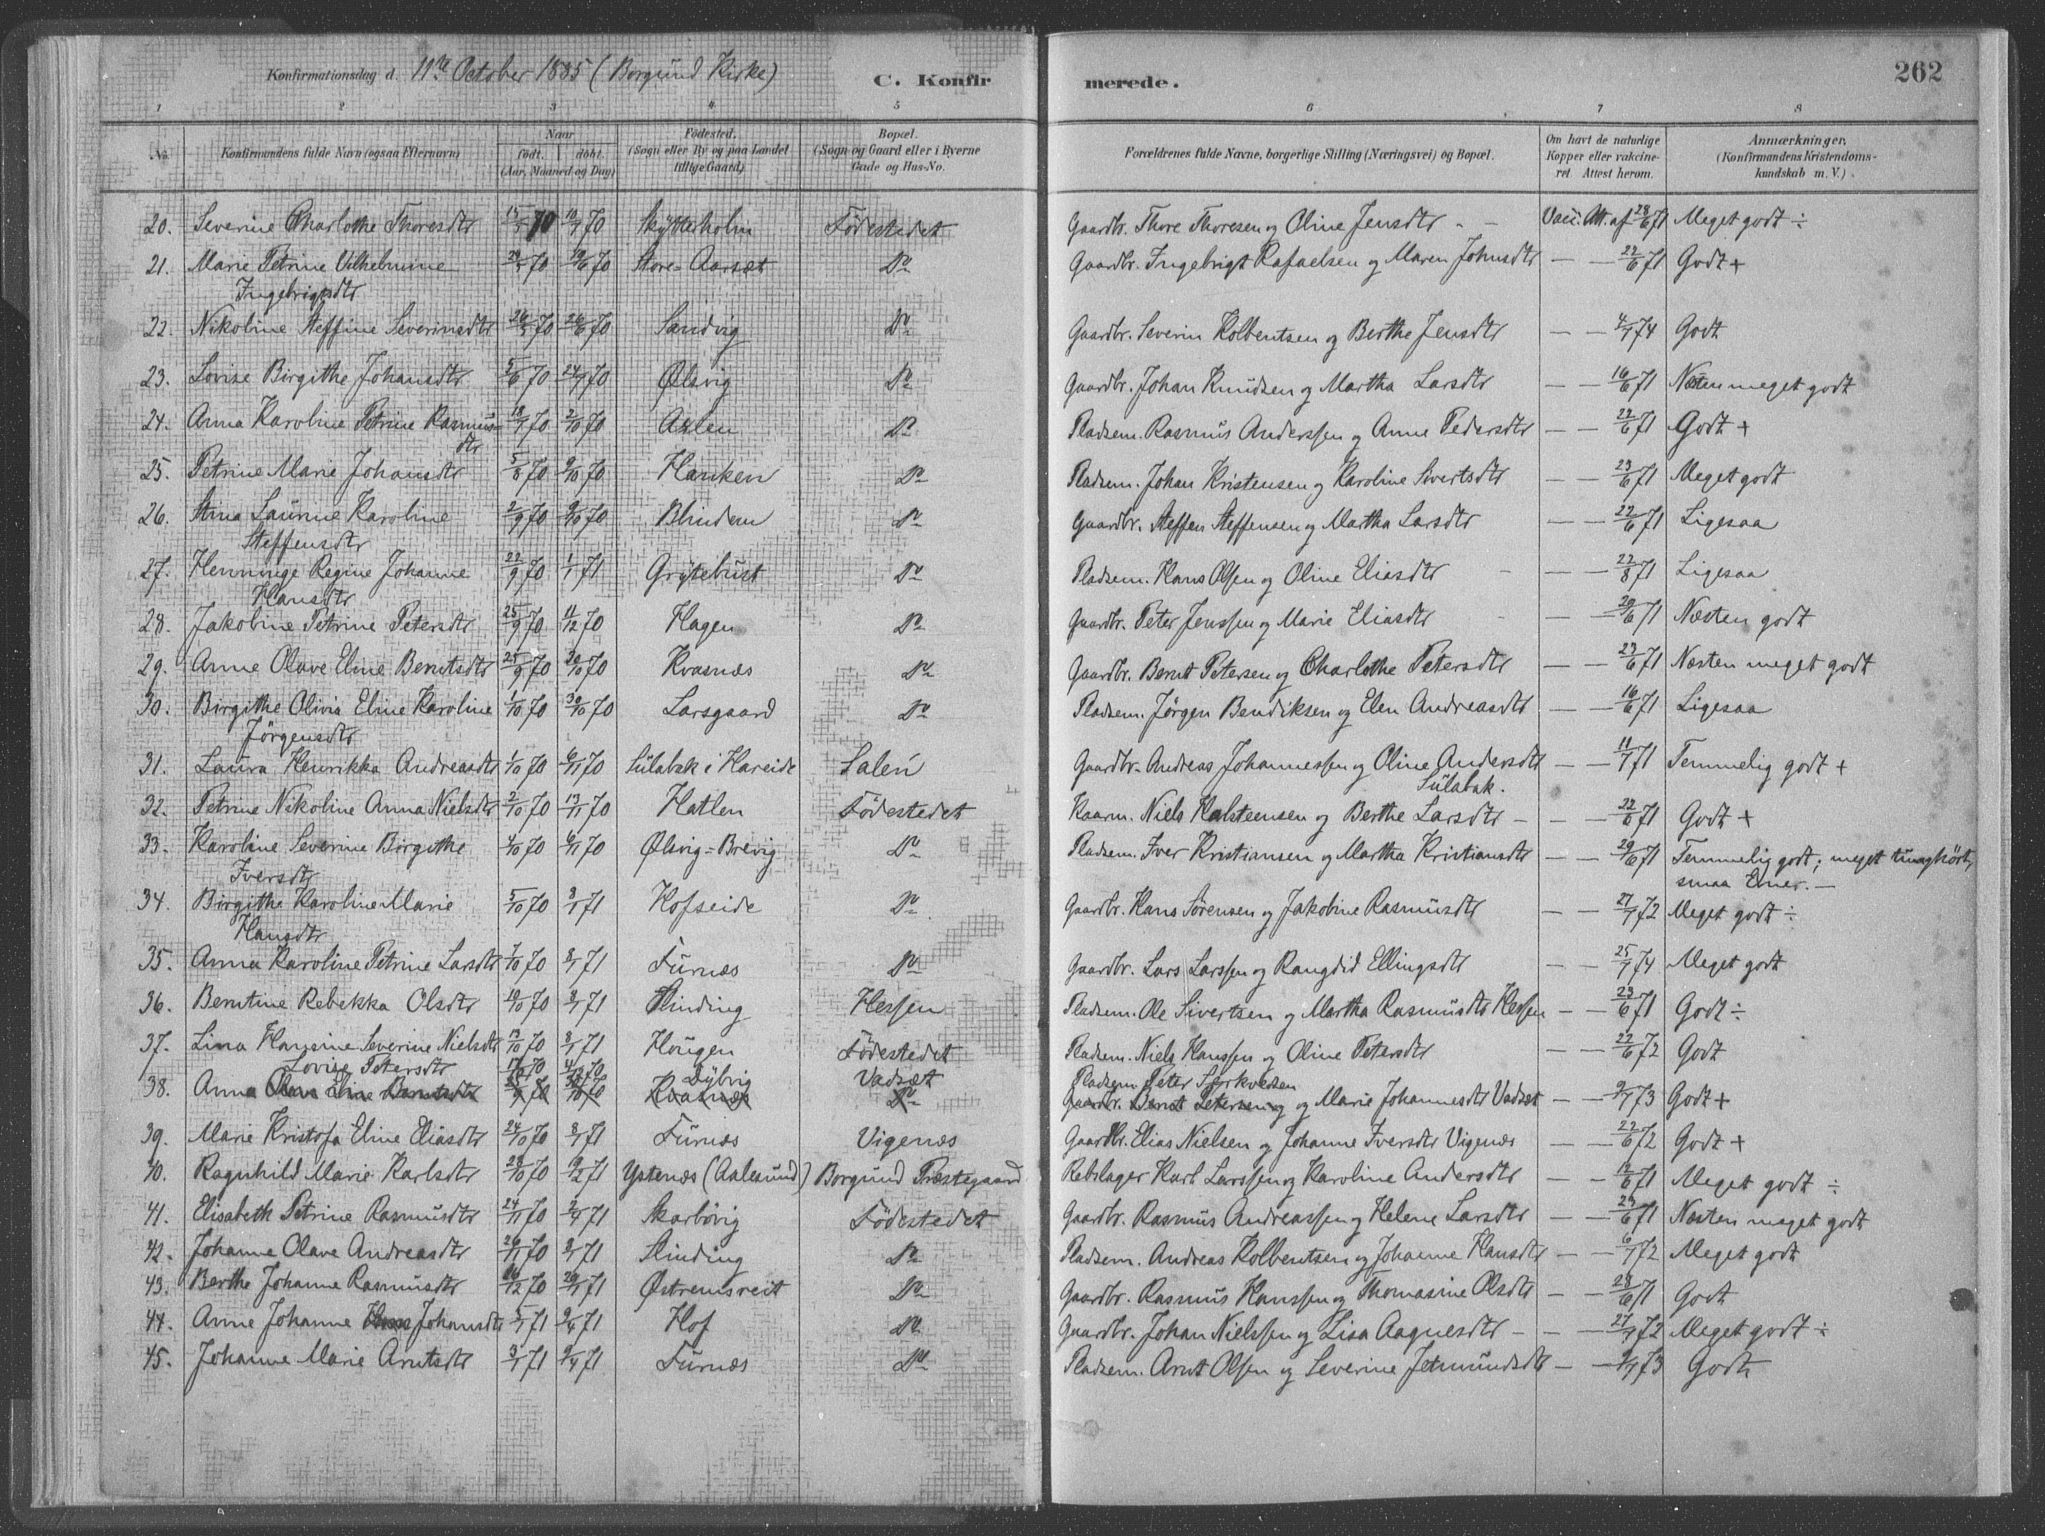 Konfirmationsdag d. 11te October 1885 (Borgund Kirke) C. Konfir merede. 262
1 2 3 4 5 6 7 8
No. Konfirmandens fulde Navn (ogsaa Efternavn) Naar født. døbt. (Aar, Maaned og Dag) Fødested. (Sogn eller By og paa Landet tillige Gaard) Bopæl. (Sogn og Gaard eller i Byerne Gade og Hus-No. Forældrenes fulde Navne, borgerlige Stilling (Næringsvei) og Bopæl. Om havt de naturlige Kopper eller vakcineret. Attest herom. Anmærkninger. (Konfirmandens Kristendomskundskab m. V.)
20. Severine Charlothe Thoresdtr 15/5 70 10/7 70 Skytterholm Fødestedet Gaardbr. Thore Thoresen og Oline Jensdtr Vacc. Att. af 28/6 71 Meget godt ÷
21. Marie Petrine Vilhelmine 70 70 Store-Aarsæt Do Gaardbr. Ingebrigt Rafaelsen og Maren Johnsdtr — — 22/6 71 Godt +
Ingebrigtsdtr
22. Nikoline Steffine Severinsdtr 26/5 70 26/6 70 Sandvig Do Gaardbr. Severin Kolbentsen og Berthe Jensdtr — — 4/7 74 Godt
23. Lovise Birgithe Johansdtr 5/6 70 24/7 70 Ølsvig Do Gaardbr. Johan Knudsen og Martha Larsdtr — — 16/6 71 Næsten meget godt
24. Anna Karoline Petrine Rasmus- 18/7 70 2/10 70 Do Pladsem. Rasmus Anderssen og Anne Pedersdtr — — 22/6 71 Godt +
dtr
25. Petrine Marie Johansdtr 5/8 70 9/10 70 Hanken Do Pladsem. Johan Kristensen og Karoline Sivertsdtr — — 23/6 71 Meget godt
26. Stina Laurine Karoline 2/9 70 9/10 70 Blindem Do Gaardbr. Steffen Steffensen og Martha Larsdtr — — 22/6 71 Ligesaa
Steffensdtr
27. Henninge Regine Johanne 22/9 70 1/1 71 Grytebust Do Pladsem. Hans Olsen og Oline Eliasdtr — — 22/8 71 Ligesaa
Hansdtr
28. Jakobine Petrine Petersdtr 25/9 70 11/12 70 Hagen Do Gaardbr. Peter Jenssen og Marie Eliasdtr — 29/6 71 Næsten godt
29. Anne Olave Eline Berntsdtr 25/9 70 30/10 70 Kvasnæs Do Gaardbr. Bernt Petersen og Charlothe Petersdtr — — 23/6 71 Næsten meget godt
30. Birgithe Olivia Eline Karoline 1/10 70 30/10 70 Larsgaard Do Pladsem. Jørgen Bendiksen og Elen Andreasdtr — — 16/6 71 Ligesaa
Jørgensdtr
31. Laura Henrikka Andreasdtr 1/10 70 6/11 70 Sulabak i Hareide Salen Gaardbr. Andreas Johannessen og Oline Andersdtr — — 11/7 71 Temmelig godt +
Sulabak.
32. Petrine Nikoline Anna Nielsdtr 2/10 70 13/11 70 Hatlen Fødestedet Kaarm. Niels Kalsteensen og Berthe Larsdtr — — 22/6 71 Godt +
33. Karoline Severine Birgithe 4/10 70 6/11 70 Ølsvig-Brevig Do Pladsem. Iver Kristiansen og Martha Kristiansdtr — — 29/6 71 Temmelig godt; meget tunghørt,
Iversdtr smaa Evner. —
34. Birgithe Karoline Marie 5/10 70 8/1 71 Hofseide Do Gaardbr. Hans Sørensen og Jakobine Rasmusdtr — — 27/7 72 Meget godt ÷
Hansdtr
35. Anna Karoline Petrine Larsdtr 7/10 70 8/1 71 Furnæs Do Gaardbr. Lars Larssen og Rangdid Ellingsdtr — — 25/7 74 Meget godt
36. Berntine Rebekka Olsdtr 70 8/1 71 Slinding Hessen Pladsem. Ole Sivertsen og Martha Rasmusdtr Hessen — — 23/6 71 Godt ÷
37. Lina Hansine Severine Nielsdtr 13/10 70 8/1 71 Hougen Fødestedet Pladsem. Niels Hanssen og Oline Petersdtr — — 22/6 72 Godt
Lovise Petersdtr 70 4/12 70 Dybvig Vadsæt Pladsem. Peter
38. Anna Olave Eline Berntsdtr 25/9 70 30/10 70 Kvasnæs Do Gaardbr. Bernt Petersen og Marie Johannesdtr Vadsæt — 9/7 73 Godt +
39. Marie Kristofa Eline Eliasdtr 24/10 70 8/1 71 Furnæs Vigenæs Gaardbr. Elias Nielsen og Johanne Iversdtr Vigenæs — 22/6 72 Godt +
40. Ragnhild Marie Karlsdtr 28/10 70 9/2 71 Ystenæs (Aalesund) Borgund Præstegaard Rebslager Karl Larssen og Karoline Andersdtr — 12/6 71 Meget godt ÷
41. Elisabeth Petrine Rasmusdtr 24/11 70 2/4 71 Skarbøvig Fødestedet Gaardbr. Rasmus Andreassen og Helene Larsdtr — — 23/6 71 Næsten meget godt
42. Johanne Olave Andreasdtr 26/11 70 8/1 71 Slinding Do Pladsem. Andreas Kolbentsen og Johanne Hansdtr — — 6/7 72 Meget godt
43. Berthe Johanne Rasmusdtr 16/12 70 29/1 71 Østremsreit Do Gaardbr. Rasmus Hanssen og Thomasine Olsdtr — — 28/6 71 Godt
44. Anne Johanne Johansdtr 5/1 71 9/4 71 Hof Do Gaardbr. Johan Nielssen og Lisa Aagnesdtr — — 27/7 72 Meget godt ÷
45. Johanne Marie Arntsdtr 3/1 71 9/4 71 Furnæs Do Pladsem. Arnt Olsen og Severine Jetmundsdtr — 9/7 73 Godt